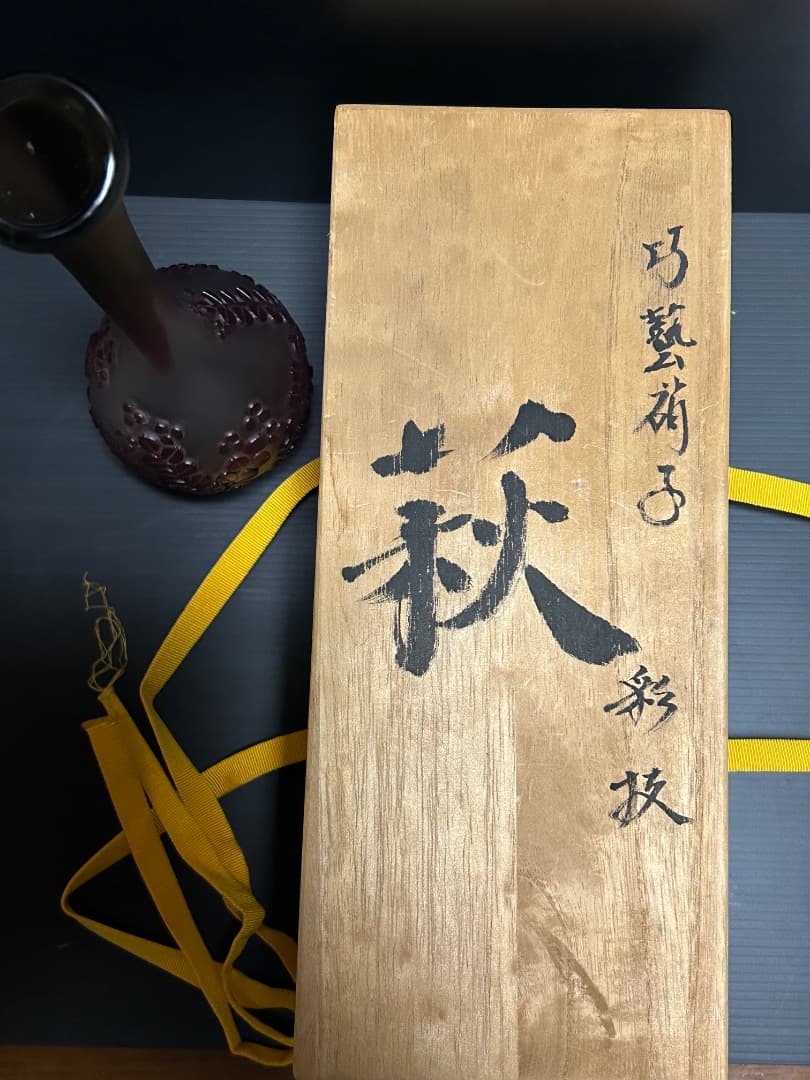 巧藝硝子
萩
彩技